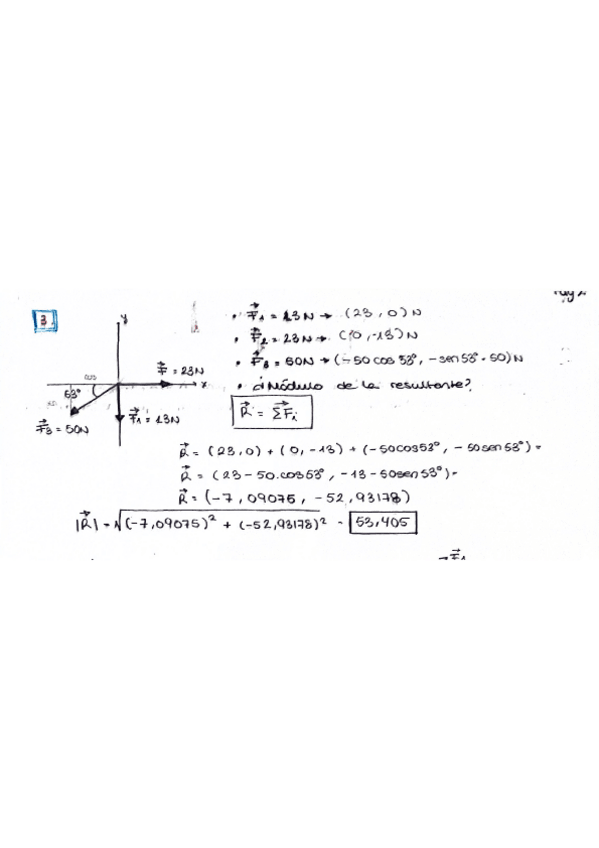 3.
y
x
53°
F⃗ = 23N
F⃗₁ = 13N
F⃗₃ = 50N
• F⃗₁ = 13N → (23, 0) N
• F⃗₂ = 23N → (0, -13) N
• F⃗₃ = 50N → (-50 cos 53°, -sen 53° · 50) N
• ¿Módulo de la resultante?
R⃗ = ΣF⃗ᵢ
R⃗ = (23, 0) + (0, -13) + (-50cos53°, -50sen53°) =
R⃗ = (23 - 50.cos53°, -13 - 50sen53°) =
R⃗ = (-7,09075, -52,93178)
|R⃗| = √(-7,09075)² + (-52,93178)² = 53,405